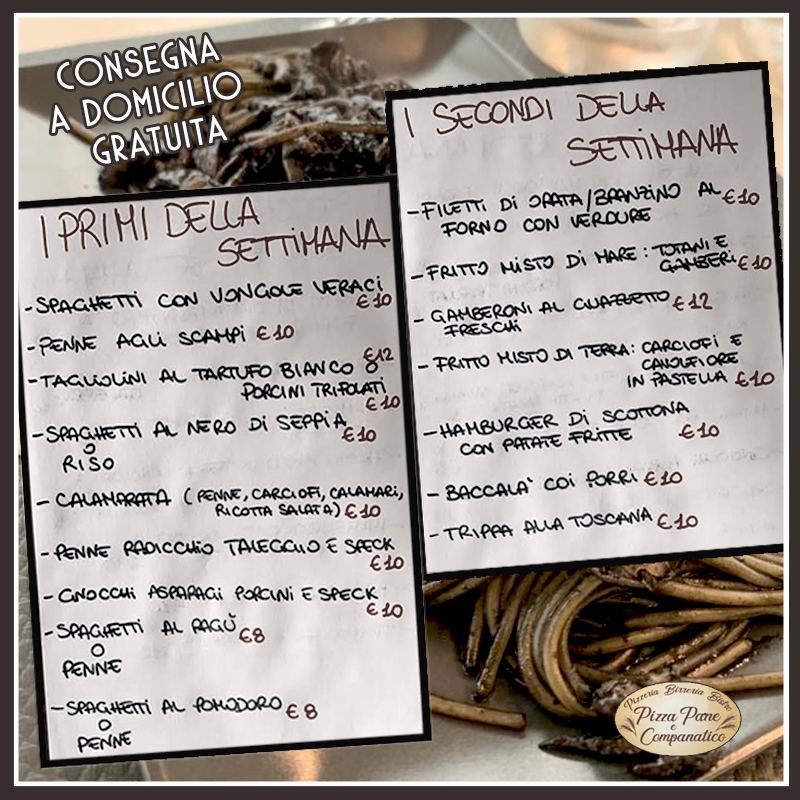 CONSEGNA
A DOMICILIO
GRATUITA
I PRIMI DELLA
SETTIMANA
- SPAGHETTI CON VONGOLE VERACI
€10
- PENNE AGLI SCAMPI €10
€12
- TAGLIOLINI AL TARTUFO BIANCO O
PORCINI TRIFOLATI
€10
- SPAGHETTI AL NERO DI SEPPIA
€10
O
RISO
- CALAMARATA (PENNE, CARCIOFI, CALAMARI,
RICOTTA SALATA) €10
- PENNE RADICCHIO TALEGGIO E SPECK
€10
- GNOCCHI ASPARAGI PORCINI E SPECK
€10
- SPAGHETTI AL RAGÙ €8
O
PENNE
- SPAGHETTI AL POMODORO €8
O
PENNE
I SECONDI DELLA
SETTIMANA
- FILETTI DI ORATA/BRANZINO AL €10
FORNO CON VERDURE
- FRITTO MISTO DI MARE: TOTANI E
GAMBERI €10
- GAMBERONI AL GUAZZETTO €12
FRESCHI
- FRITTO MISTO DI TERRA: CARCIOFI E
CAVOLFIORE
IN PASTELLA €10
- HAMBURGER DI SCOTTONA
CON PATATE FRITTE €10
- BACCALA' COI PORRI €10
- TRIPPA ALLA TOSCANA €10
Pizzeria Birreria Bistro
Pizza Pane
e
Companatico